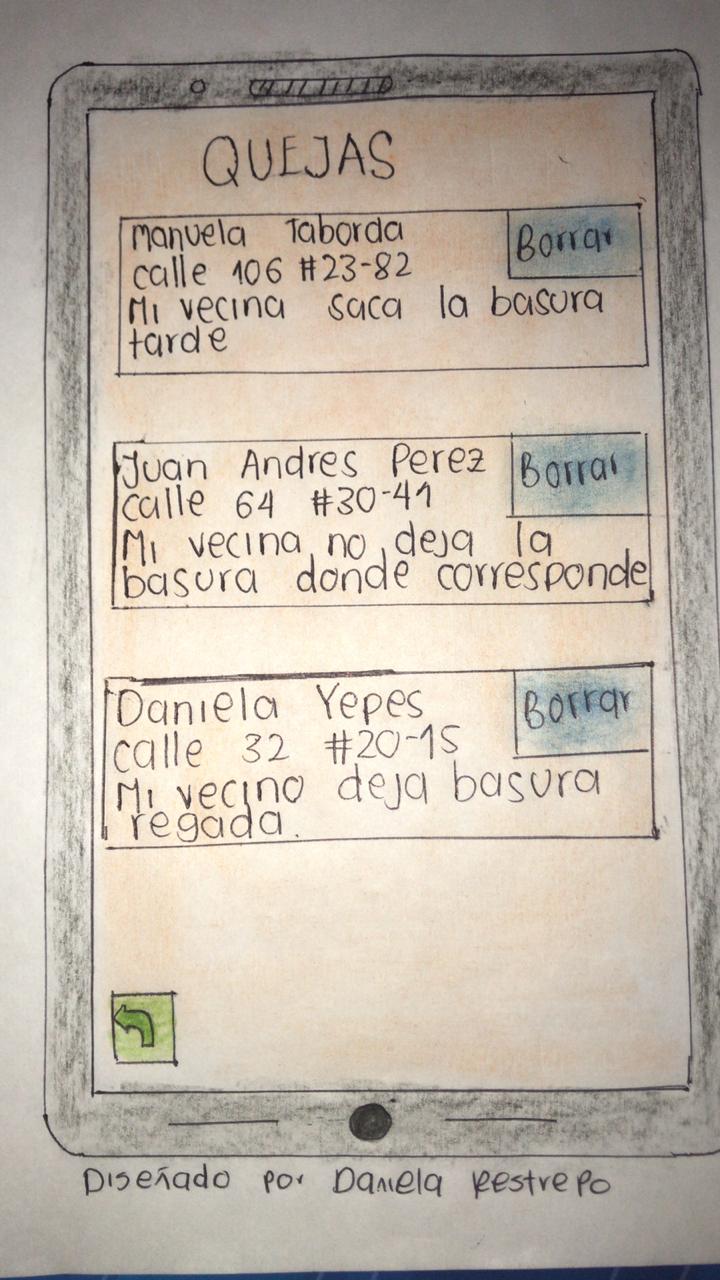 QUEJAS
Manuela Taborda
Borrar
calle 106 #23-82
Mi vecina saca la basura
tarde
Juan Andres Perez
Borrar
calle 64 #30-41
Mi vecina no deja la
basura donde corresponde
Daniela Yepes
Borrar
calle 32 #20-15
Mi vecino deja basura
regada.
Diseñado por Daniela Restrepo